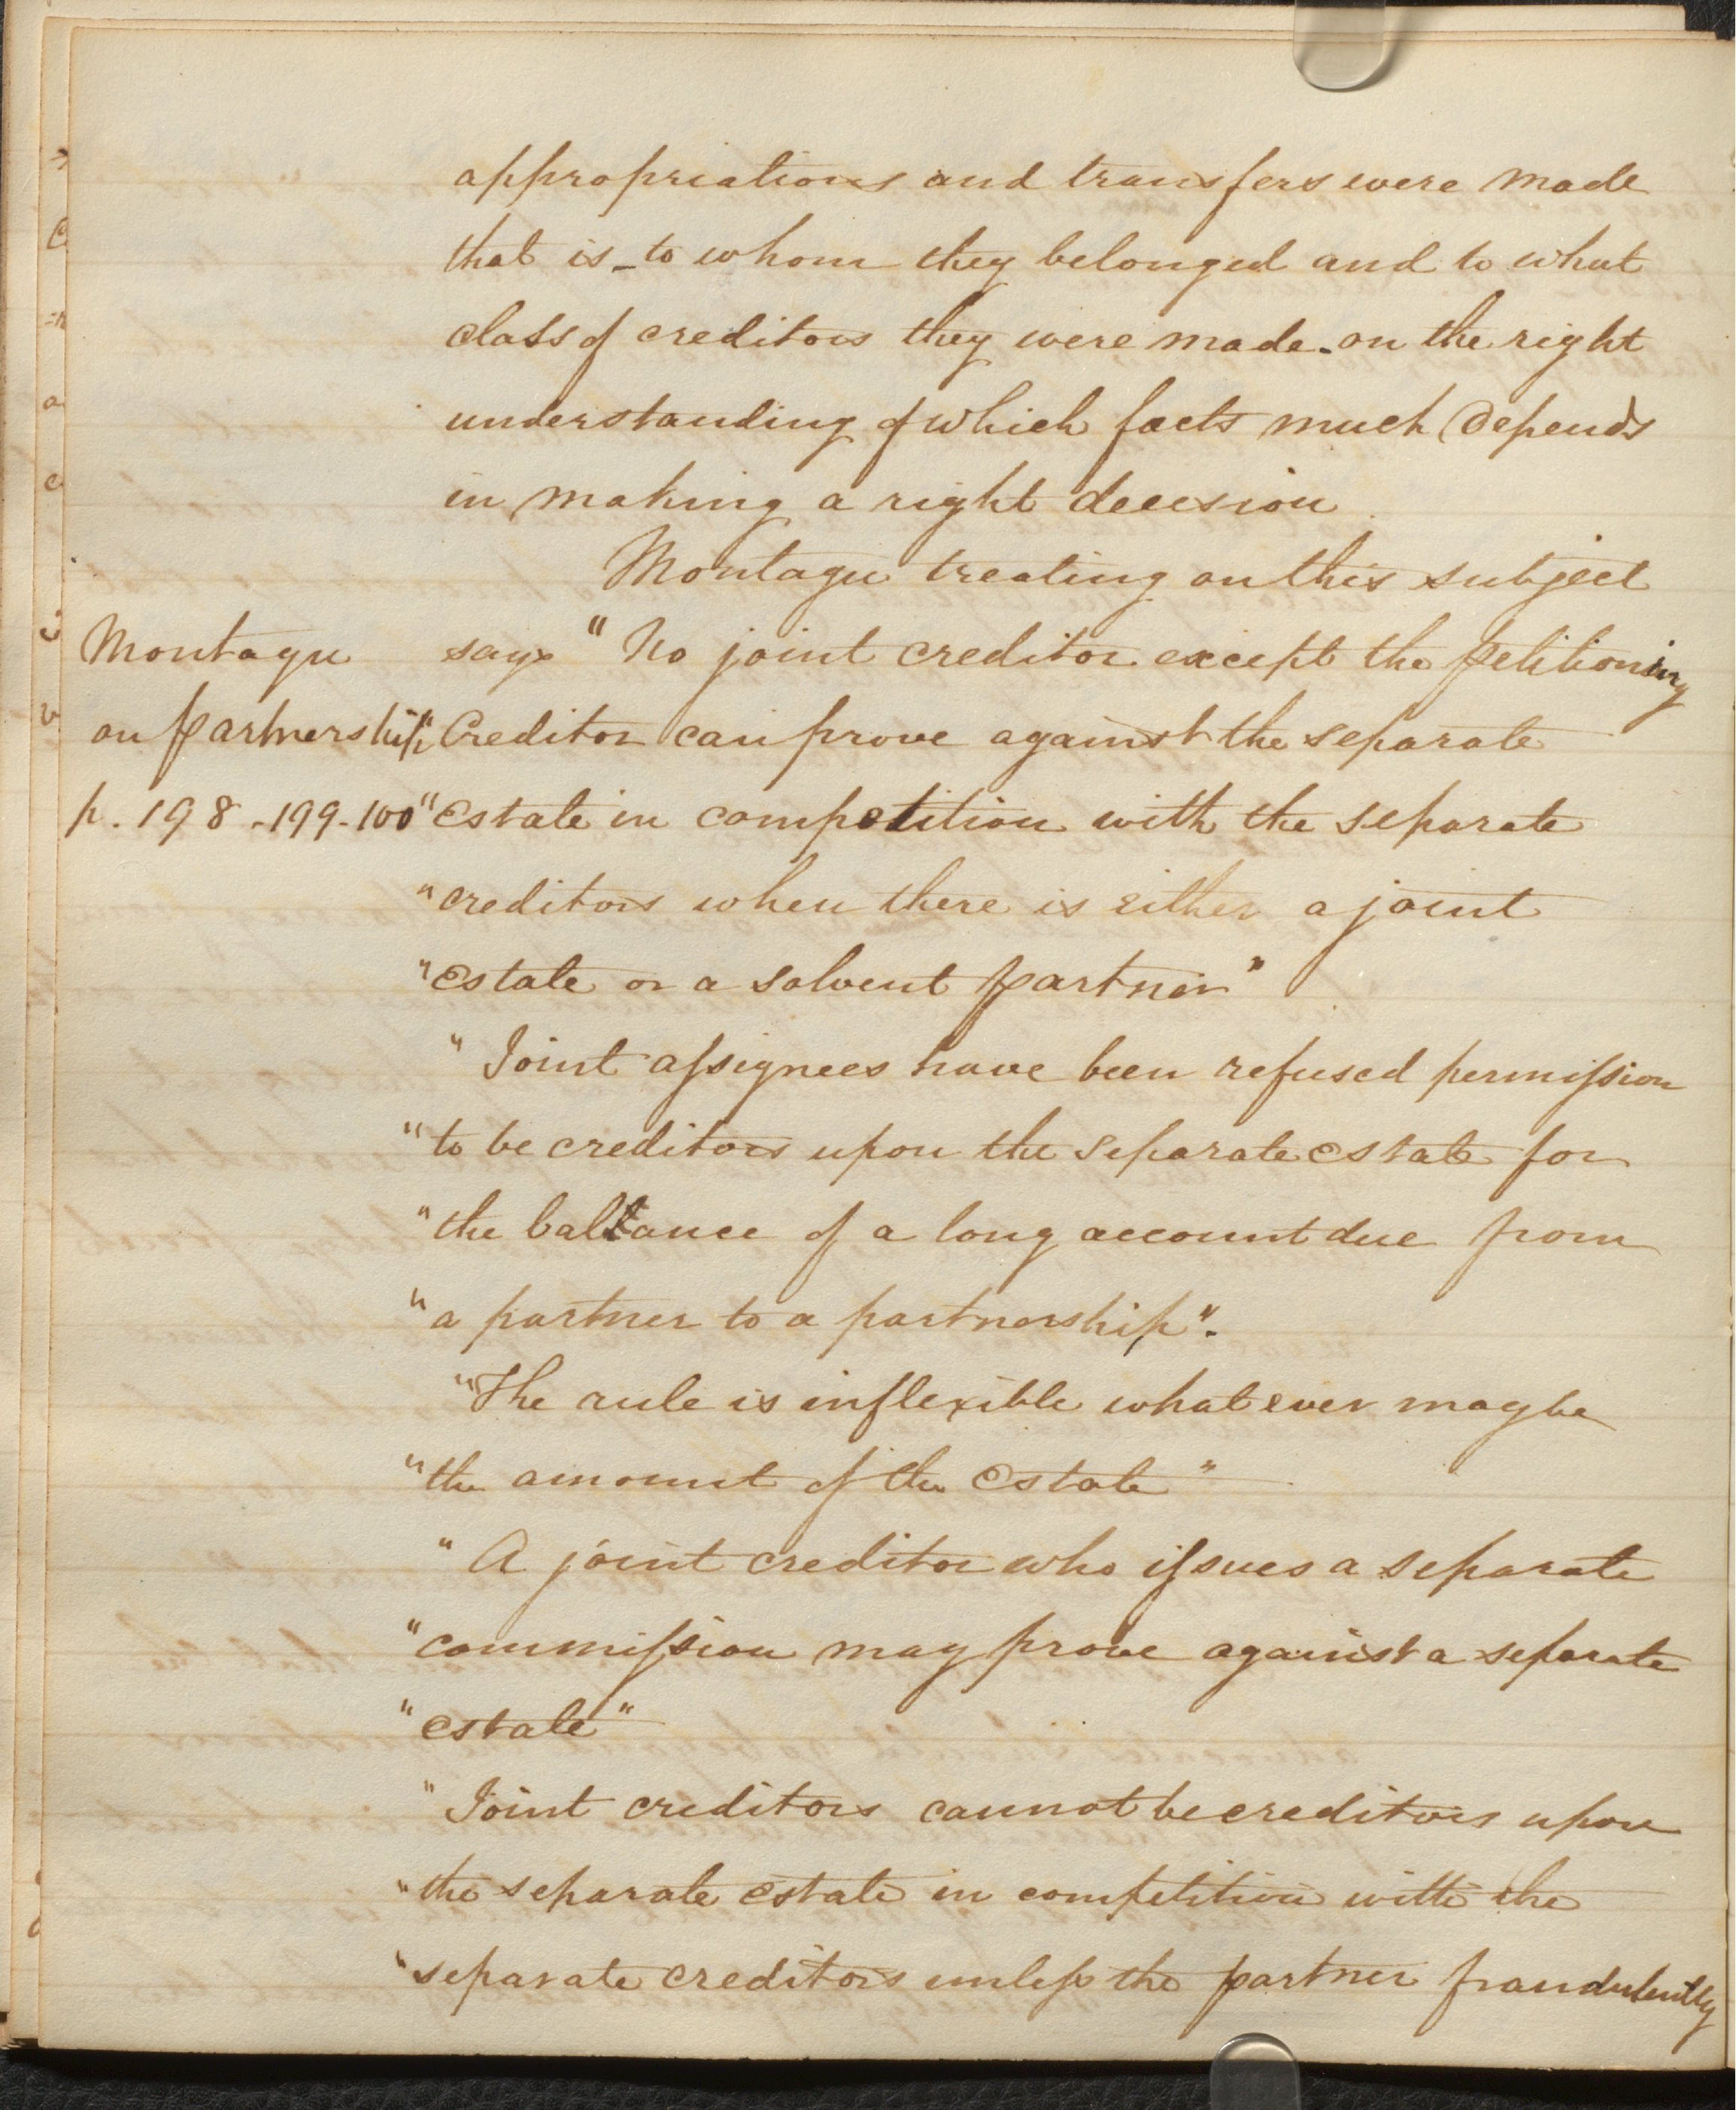 appropriations and transfers were made
that is - to whom they belonged and to what
class of creditors they were made - on the right
understanding of which facts much Depends
in making a right decision
Montagu treating on this subject
Montagu says "No joint creditor except the petitioning
on partnership "Creditor can prove against the separate
p. 198 - 199 - 100 "Estate in competition with the separate
"creditors when there is either a joint
"Estate or a solvent partner"
"Joint assignees have been refused permission
"to be creditors upon the separate estate for
"the ballance of a long account due from
"a partner to a partnership".
"The rule is inflexible whatever may be
"the amount of the Estate"
"A joint creditor who issues a separate
"commission may prove against a separate
"estate"
"Joint creditors cannot be creditors upon
"the separate estate in competition with the
"separate creditors unless the partner fraudulently